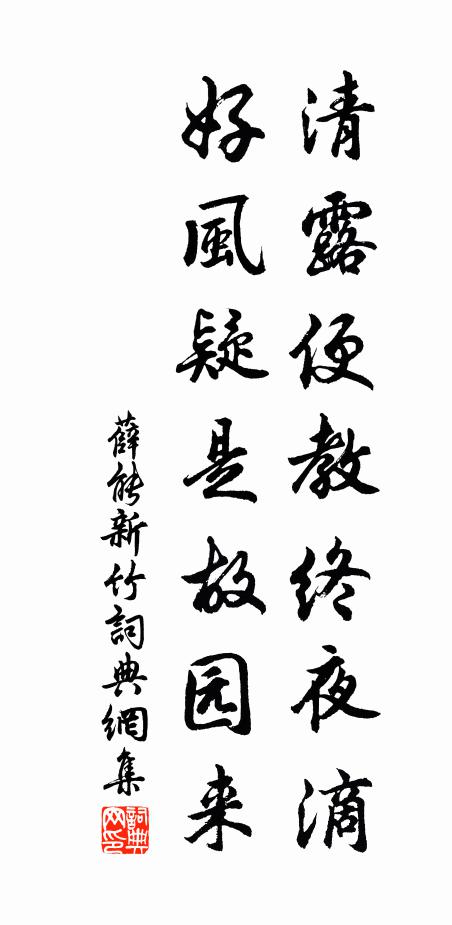 清露便教终夜滴
好風疑是故园来
薛能新竹詞典網集
詞典网印